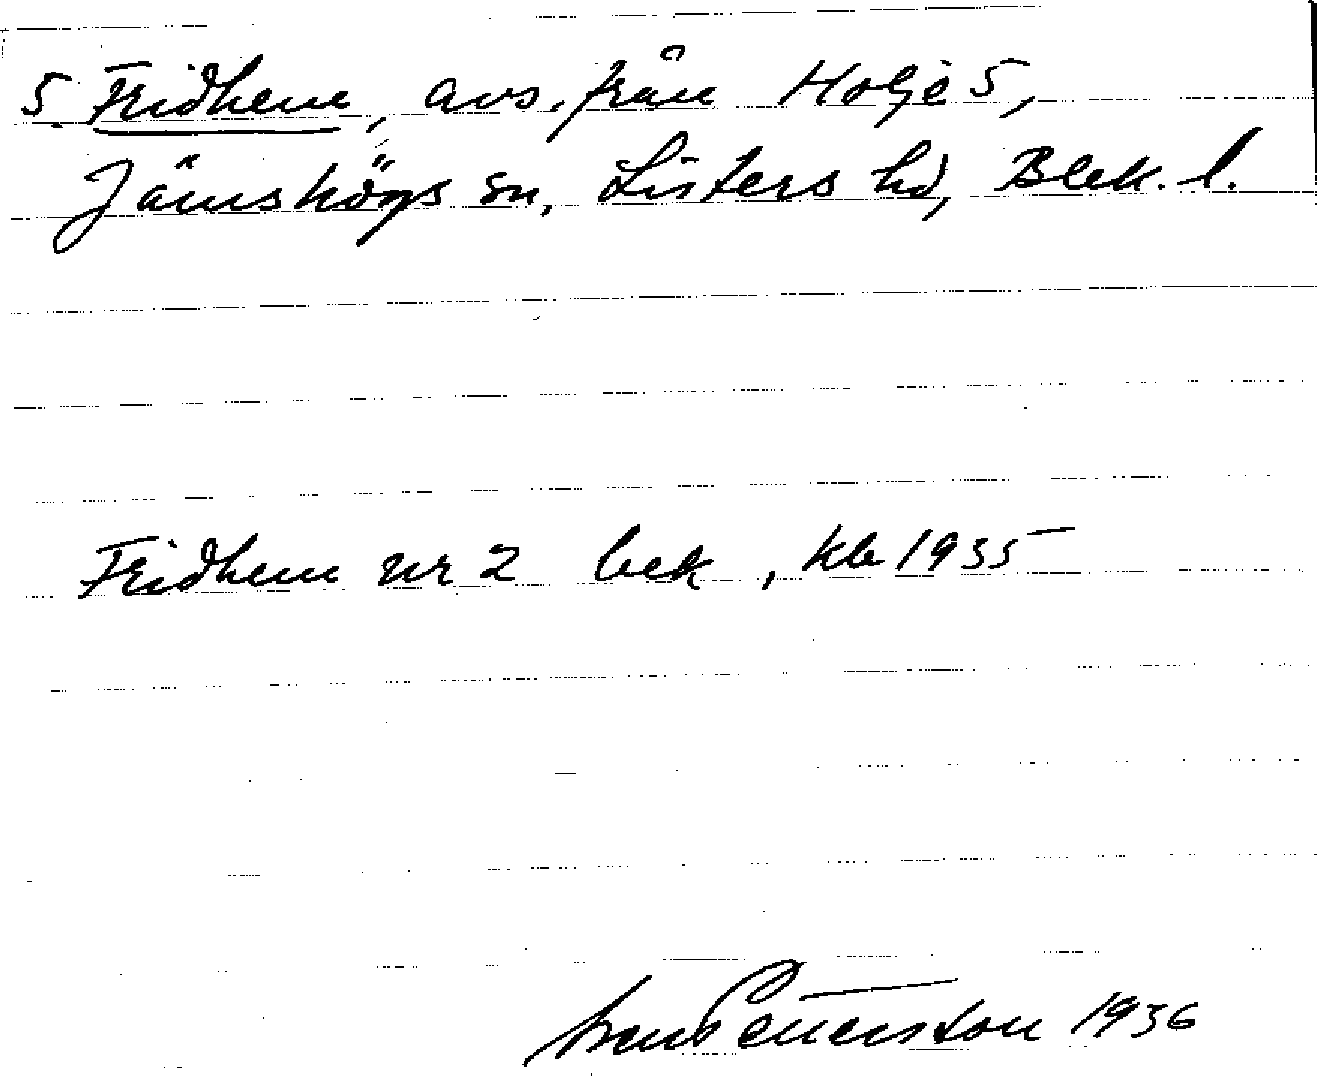 5. Fridhem, avs. från Holje 5,
Jämshögs sn, Listers hd, Blek. l.
Fridhem nr 2 bek, kb 1935
Pettersson 1936